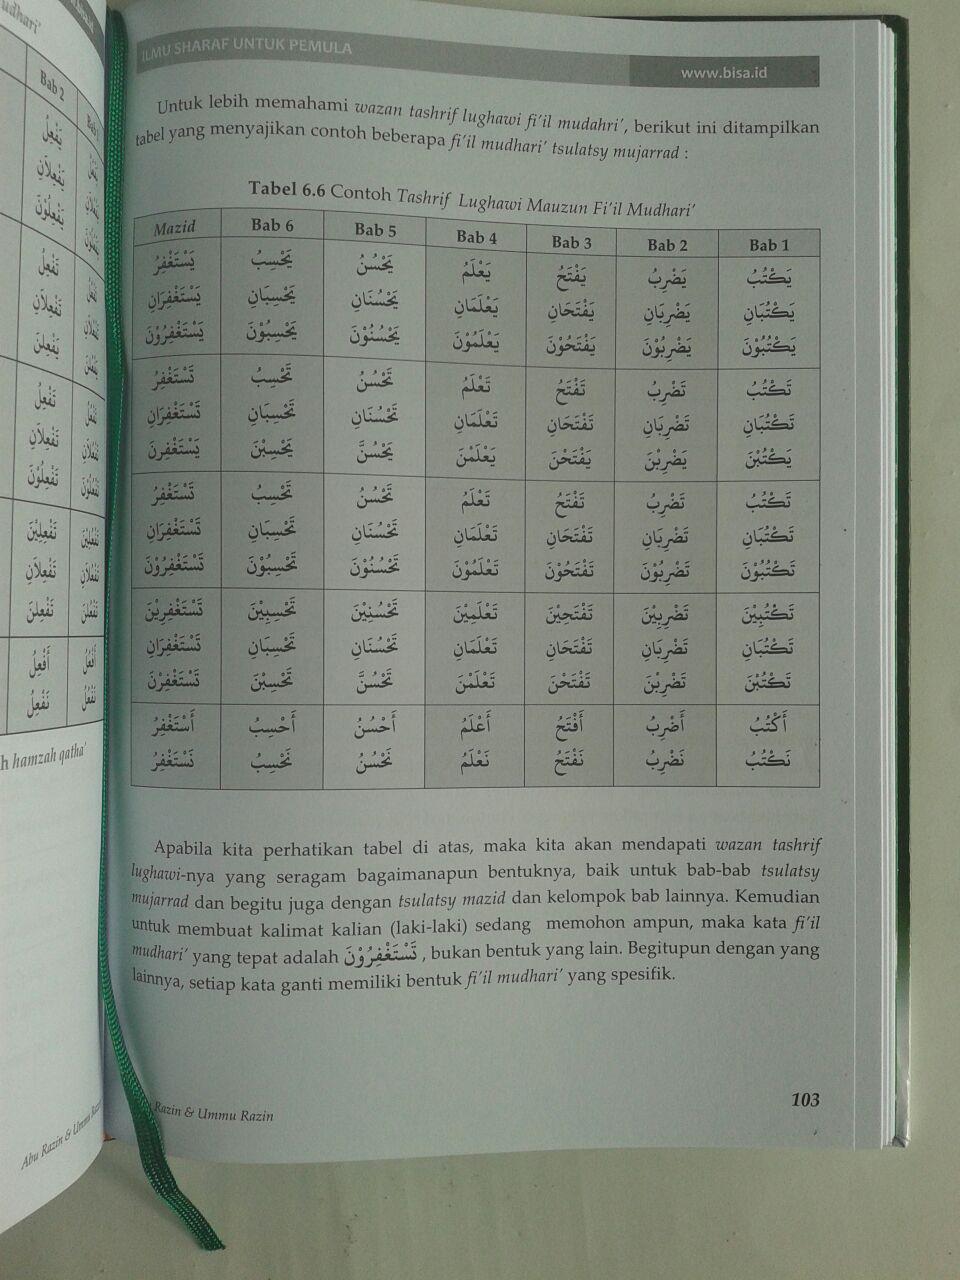 ILMU SHARAF UNTUK PEMULA
www.bisa.id
Untuk lebih memahami wazan tashrif lughawi fi'il mudahri', berikut ini ditampilkan
tabel yang menyajikan contoh beberapa fi'il mudhari' tsulatsy mujarrad :
Tabel 6.6 Contoh Tashrif Lughawi Mauzun Fi'il Mudhari'
Mazid Bab 6 Bab 5 Bab 4 Bab 3 Bab 2 Bab 1
يَكْتُبُ يَضْرِبُ يَفْتَحُ يَعْلَمُ يَحْسُنُ يَحْسِبُ يَسْتَغْفِرُ
يَكْتُبَانِ يَضْرِبَانِ يَفْتَحَانِ يَعْلَمَانِ يَحْسُنَانِ يَحْسِبَانِ يَسْتَغْفِرَانِ
يَكْتُبُوْنَ يَضْرِبُوْنَ يَفْتَحُوْنَ يَعْلَمُوْنَ يَحْسُنُوْنَ يَحْسِبُوْنَ يَسْتَغْفِرُوْنَ
تَكْتُبُ تَضْرِبُ تَفْتَحُ تَعْلَمُ تَحْسُنُ تَحْسِبُ تَسْتَغْفِرُ
تَكْتُبَانِ تَضْرِبَانِ تَفْتَحَانِ تَعْلَمَانِ تَحْسُنَانِ تَحْسِبَانِ تَسْتَغْفِرَانِ
يَكْتُبْنَ يَضْرِبْنَ يَفْتَحْنَ يَعْلَمْنَ يَحْسُنَّ يَحْسِبْنَ يَسْتَغْفِرنَ
تَكْتُبُ تَضْرِبُ تَفْتَحُ تَعْلَمُ تَحْسُنُ تَحْسِبُ تَسْتَغْفِرُ
تَكْتُبَانِ تَضْرِبَانِ تَفْتَحَانِ تَعْلَمَانِ تَحْسُنَانِ تَحْسِبَانِ تَسْتَغْفِرَانِ
تَكْتُبُوْنَ تَضْرِبُوْنَ تَفْتَحُوْنَ تَعْلَمُوْنَ تَحْسُنُوْنَ تَحْسِبُوْنَ تَسْتَغْفِرُوْنَ
تَكْتُبِيْنَ تَضْرِبِيْنَ تَفْتَحِيْنَ تَعْلَمِيْنَ تَحْسُنِيْنَ تَحْسِبِيْنَ تَسْتَغْفِرِيْنَ
تَكْتُبَانِ تَضْرِبَانِ تَفْتَحَانِ تَعْلَمَانِ تَحْسُنَانِ تَحْسِبَانِ تَسْتَغْفِرَانِ
تَكْتُبْنَ تَضْرِبْنَ تَفْتَحْنَ تَعْلَمْنَ تَحْسُنَّ تَحْسِبْنَ تَسْتَغْفِرْنَ
أَكْتُبُ أَضْرِبُ أَفْتَحُ أَعْلَمُ أَحْسُنُ أَحْسِبُ أَسْتَغْفِرُ
نَكْتُبُ نَضْرِبُ نَفْتَحُ نَعْلَمُ نَحْسُنُ نَحْسِبُ نَسْتَغْفِرُ
Apabila kita perhatikan tabel di atas, maka kita akan mendapati wazan tashrif
lughawi-nya yang seragam bagaimanapun bentuknya, baik untuk bab-bab tsulatsy
mujarrad dan begitu juga dengan tsulatsy mazid dan kelompok bab lainnya. Kemudian
untuk membuat kalimat kalian (laki-laki) sedang memohon ampun, maka kata fi'il
mudhari' yang tepat adalah تَسْتَغْفِرُوْنَ , bukan bentuk yang lain. Begitupun dengan yang
lainnya, setiap kata ganti memiliki bentuk fi'il mudhari' yang spesifik.
Razin & Ummu Razin
103
Bab 2
يَفْعِلُ
يَفْعِلَانِ
يَفْعِلُوْنَ
تَفْعِلُ
تَفْعِلَانِ
يَفْعِلْنَ
تَفْعِلُ
تَفْعِلَانِ
تَفْعِلُوْنَ
تَفْعِلِيْنَ
تَفْعِلَانِ
تَفْعِلْنَ
أَفْعِلُ
نَفْعِلُ
hamzah qatha'
Abu Razin & Ummu